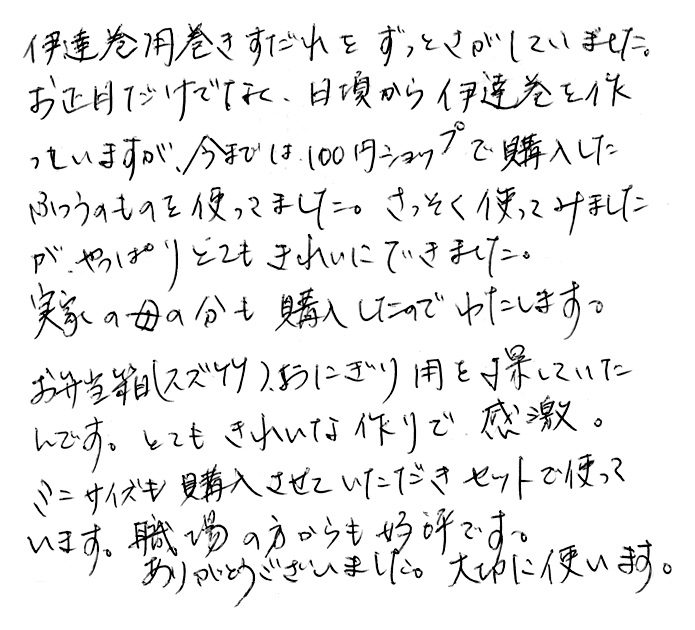 伊達巻用巻きすだれをずっとさがしていました。
お正月だけでなく、日頃から伊達巻を作
っていますが、今までは100円ショップで購入した
ふつうのものを使ってました。さっそく使ってみました
が、やっぱりとてもきれいにできました。
実家の母の分も購入したのでわたします。
お弁当箱(スズ竹)、おにぎり用を探していた
んです。とてもきれいな作りで感激。
ミニサイズも購入させていただきセットで使って
います。職場の方からも好評です。
ありがとうございました。大切に使います。